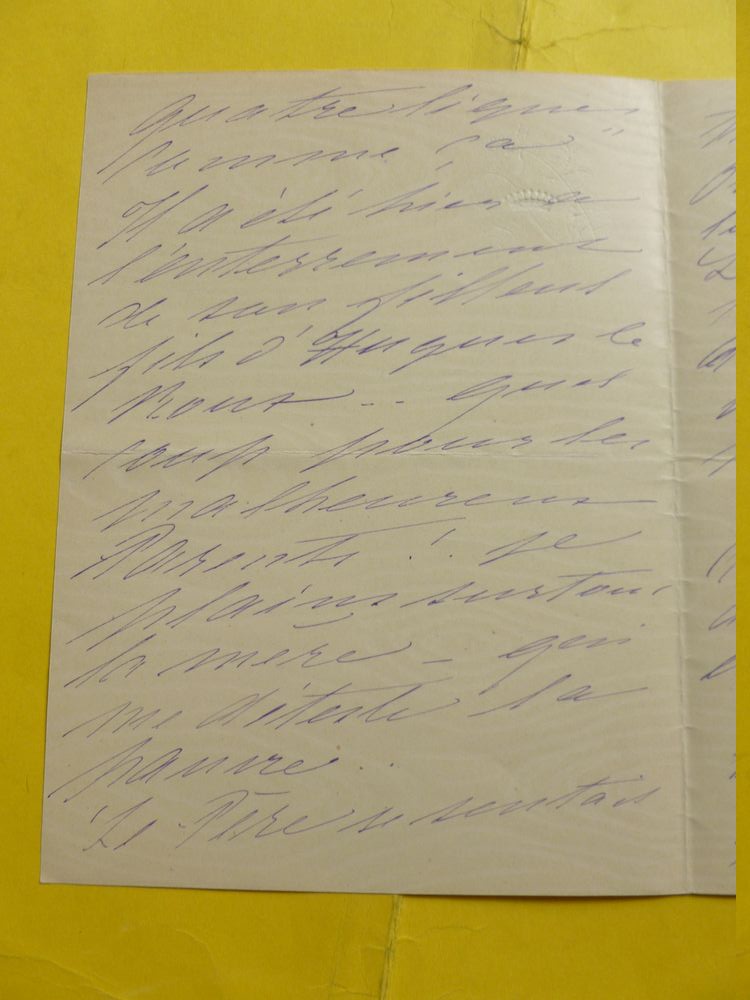 quatre lignes
comme ça"
Il a été hier à
l'enterrement
de son filleul
fils d'Hugues le
Roux .. quel
coup pour les
malheureux
Parents ! je
plains surtout
la mère - qui
me déteste la
pauvre ..
Le Père se sentait